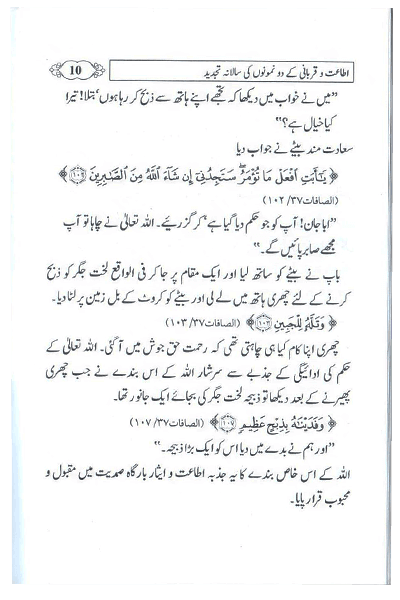 اطاعت و قربانی کے دو نمونوں کی سالانہ تجدید
10
”میں نے خواب میں دیکھا کہ تجھے اپنے ہاتھ سے ذبح کر رہا ہوں‘ بتلا! تیرا
کیا خیال ہے؟“
سعادت مند بیٹے نے جواب دیا
﴿ يَٰٓأَبَتِ ٱفْعَلْ مَا تُؤْمَرُ سَتَجِدُنِىٓ إِن شَآءَ ٱللَّهُ مِنَ ٱلصَّٰبِرِينَ ١٠٢ ﴾
(الصافات ۳۷/ ۱۰۲)
”ابا جان! آپ کو جو حکم دیا گیا ہے‘ کر گزریئے۔ اللہ تعالیٰ نے چاہا تو آپ
مجھے صابر پائیں گے۔“
باپ نے بیٹے کو ساتھ لیا اور ایک مقام پر جا کر فی الواقع لخت جگر کو ذبح
کرنے کے لئے چھری ہاتھ میں لے لی اور بیٹے کو کروٹ کے بل زمین پر لٹا دیا۔
﴿ وَتَلَّهُۥ لِلْجَبِينِ ١٠٣ ﴾ (الصافات ۳۷/ ۱۰۳)
چھری اپنا کام کیا ہی چاہتی تھی کہ رحمت حق جوش میں آ گئی۔ اللہ تعالیٰ کے
حکم کی ادائیگی کے جذبے سے سرشار اللہ کے اس بندے نے جب چھری
پھیرنے کے بعد دیکھا تو ذبیحہ لخت جگر کی بجائے ایک جانور تھا۔
﴿ وَفَدَيْنَٰهُ بِذِبْحٍ عَظِيمٍ ١٠٧ ﴾ (الصافات ۳۷/ ۱۰۷)
”اور ہم نے بدے میں دیا اس کو ایک بڑا ذبیحہ۔“
اللہ کے اس خاص بندے کا یہ جذبہ اطاعت و ایثار بارگاہ صمدیت میں مقبول و
محبوب قرار پایا۔